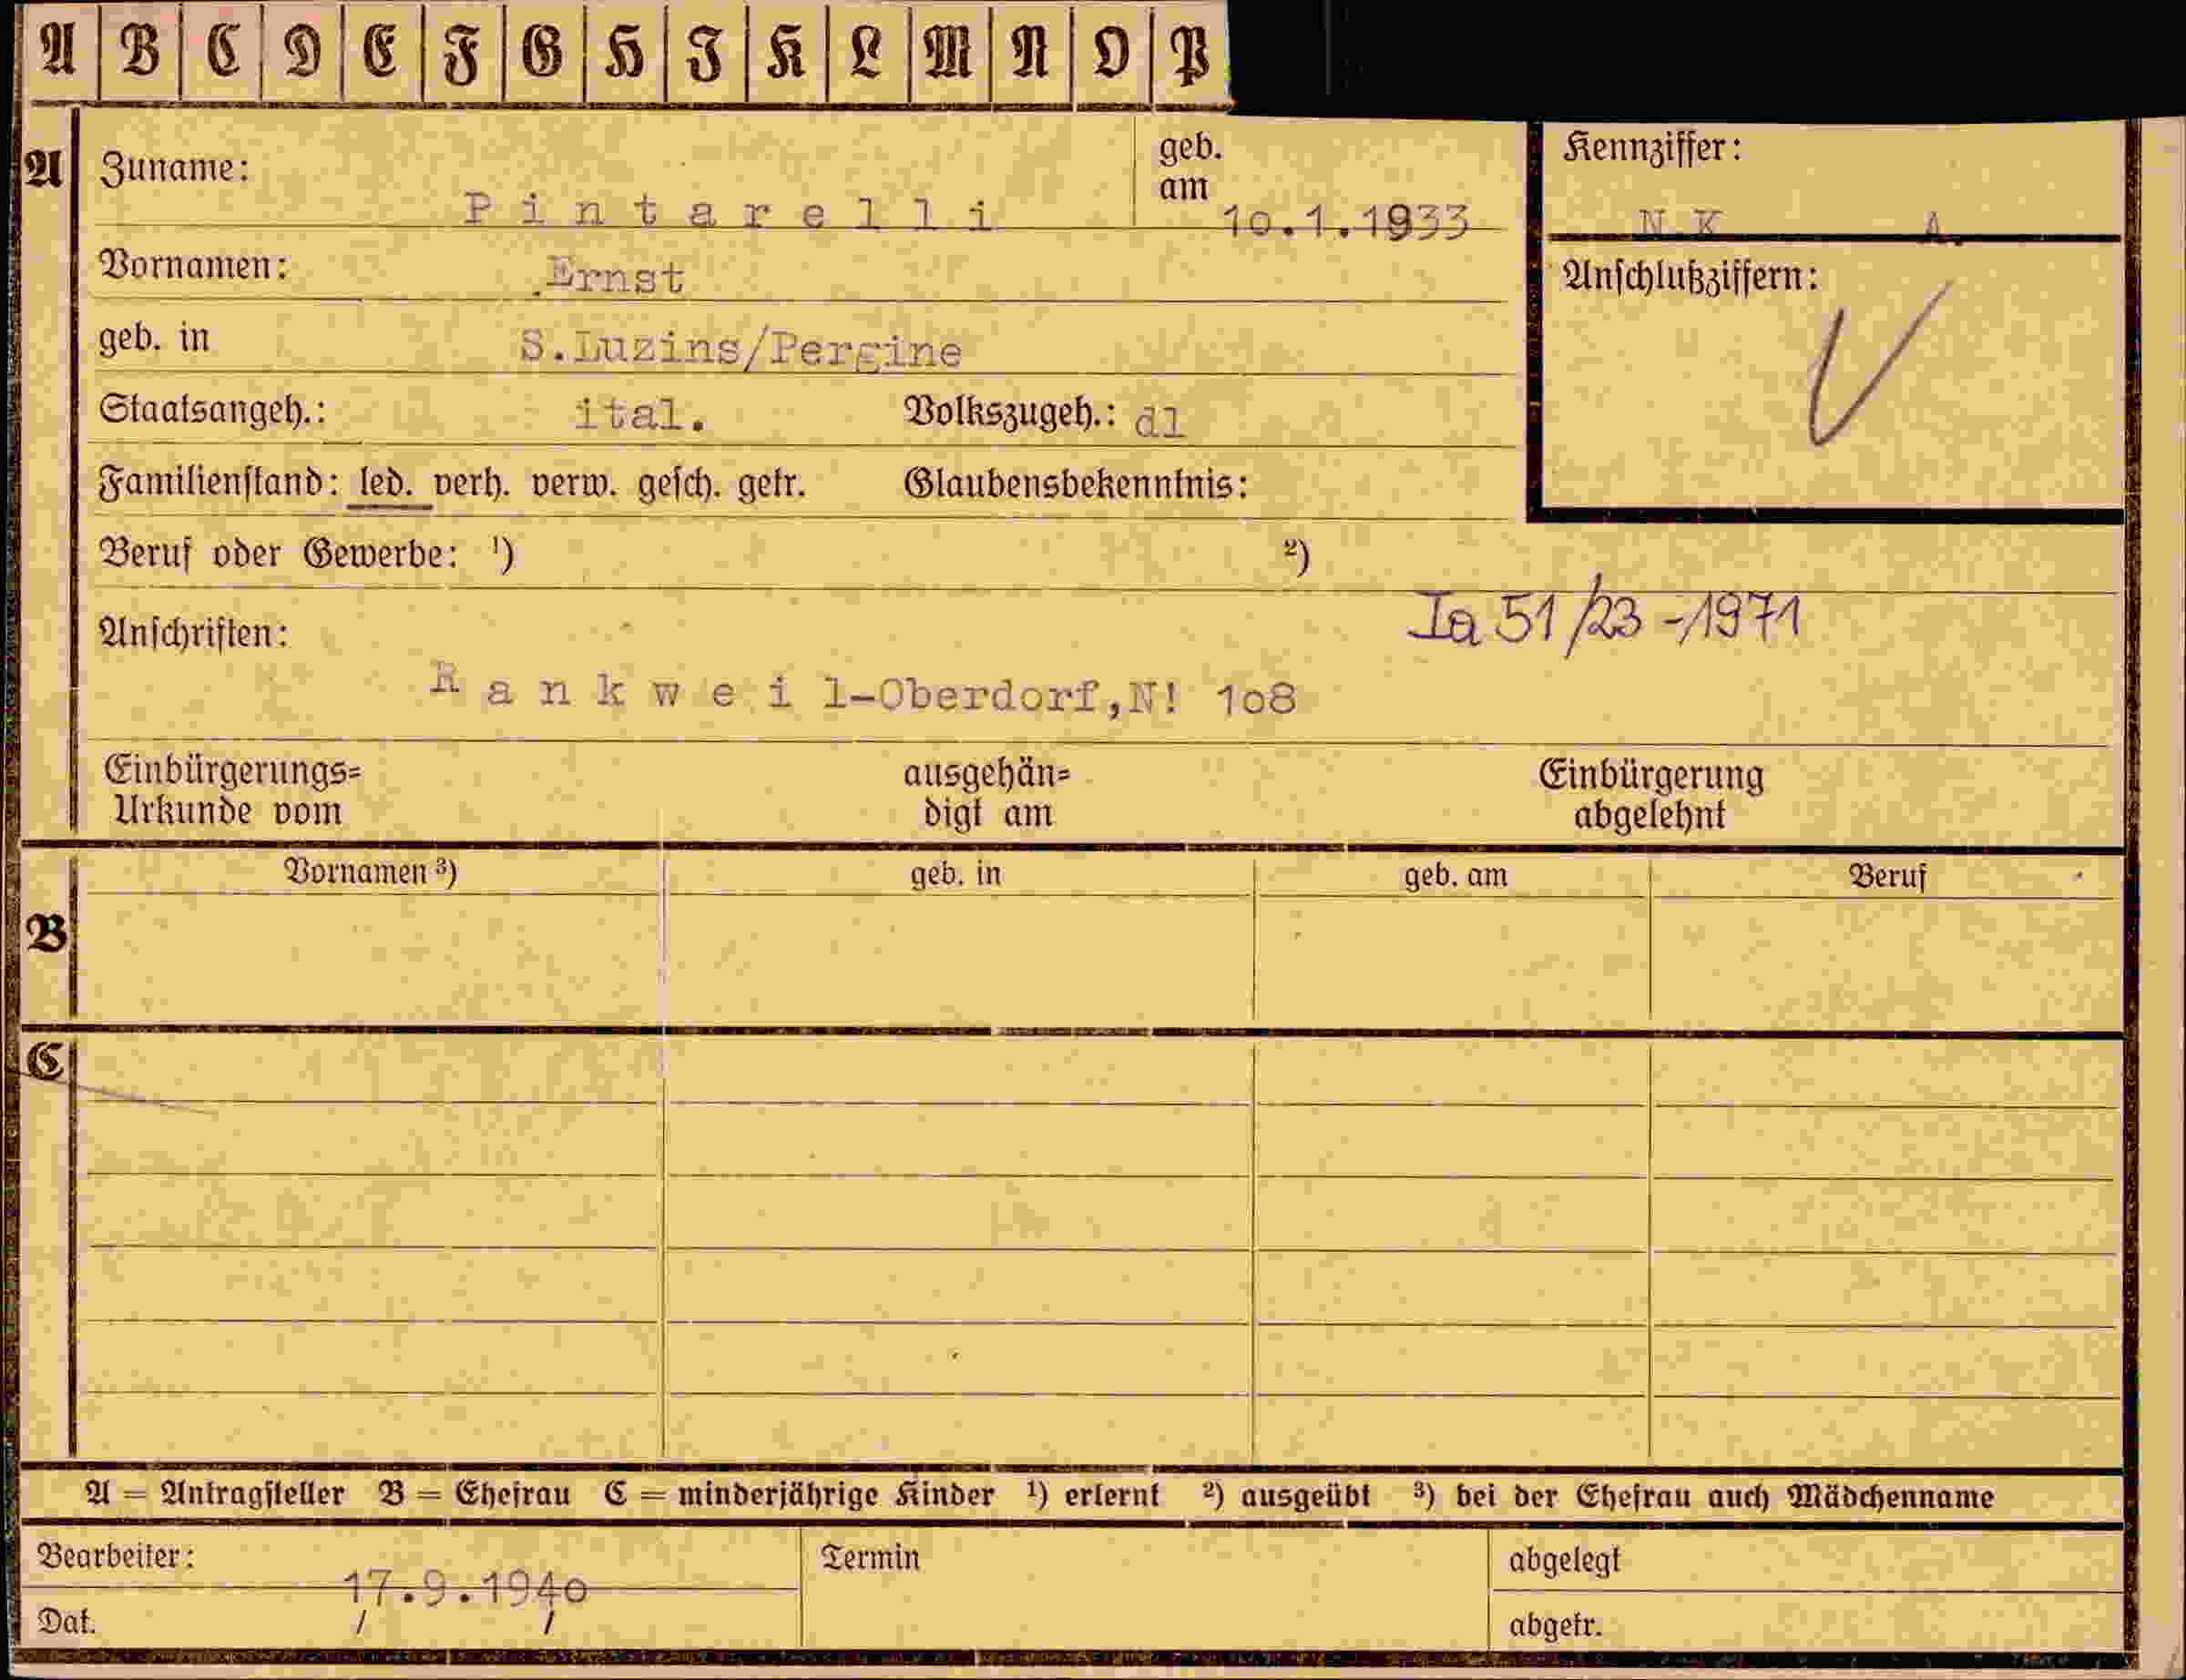 A B C D E F G H I K L M N O P
A Zuname: Pintarelli geb. am 10.1.1933
Kennziffer: N K A.
Vornamen: Ernst
Anschlußziffern:
geb. in S.Luzins/Pergine
Staatsangeh.: ital. Volkszugeh.: dl
Familienstand: led. verh. verw. gesch. getr. Glaubensbekenntnis:
Beruf oder Gewerbe: ¹) ²)
Ia 51/23-1971
Anschriften:
Rankweil-Oberdorf,N! 108
Einbürgerungs= ausgehän= Einbürgerung
Urkunde vom digt am abgelehnt
Vornamen ³) geb. in geb. am Beruf
B
C
A = Antragsteller B = Ehefrau C = minderjährige Kinder ¹) erlernt ²) ausgeübt ³) bei der Ehefrau auch Mädchenname
Bearbeiter: Termin abgelegt
17.9.1940
Dat. abgetr.